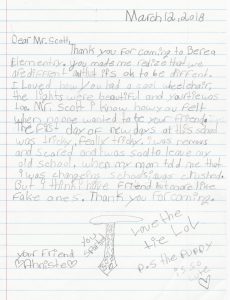 March 12, 2018
Dear Mr. Scott,
Thank you for coming to Berea
Elementary. you made me realize that we
are different but it's ok to be diffrent.
I loved how you had a cool wheelchair,
the lights were beautiful and
low. Mr. Scott i know how you felt
when no one wanted to be your friend.
The first day of new days at this school
was tricky, Really tricky. i was nervous
and scared and i was sad to leave my
old school. when my mom told me that
i was changeing schools i was crushed.
But i think i have friend but more like
fake ones. Thank you for coming.
Love the
tie LOL
you
your friend
P.S the puppy
is so
cute